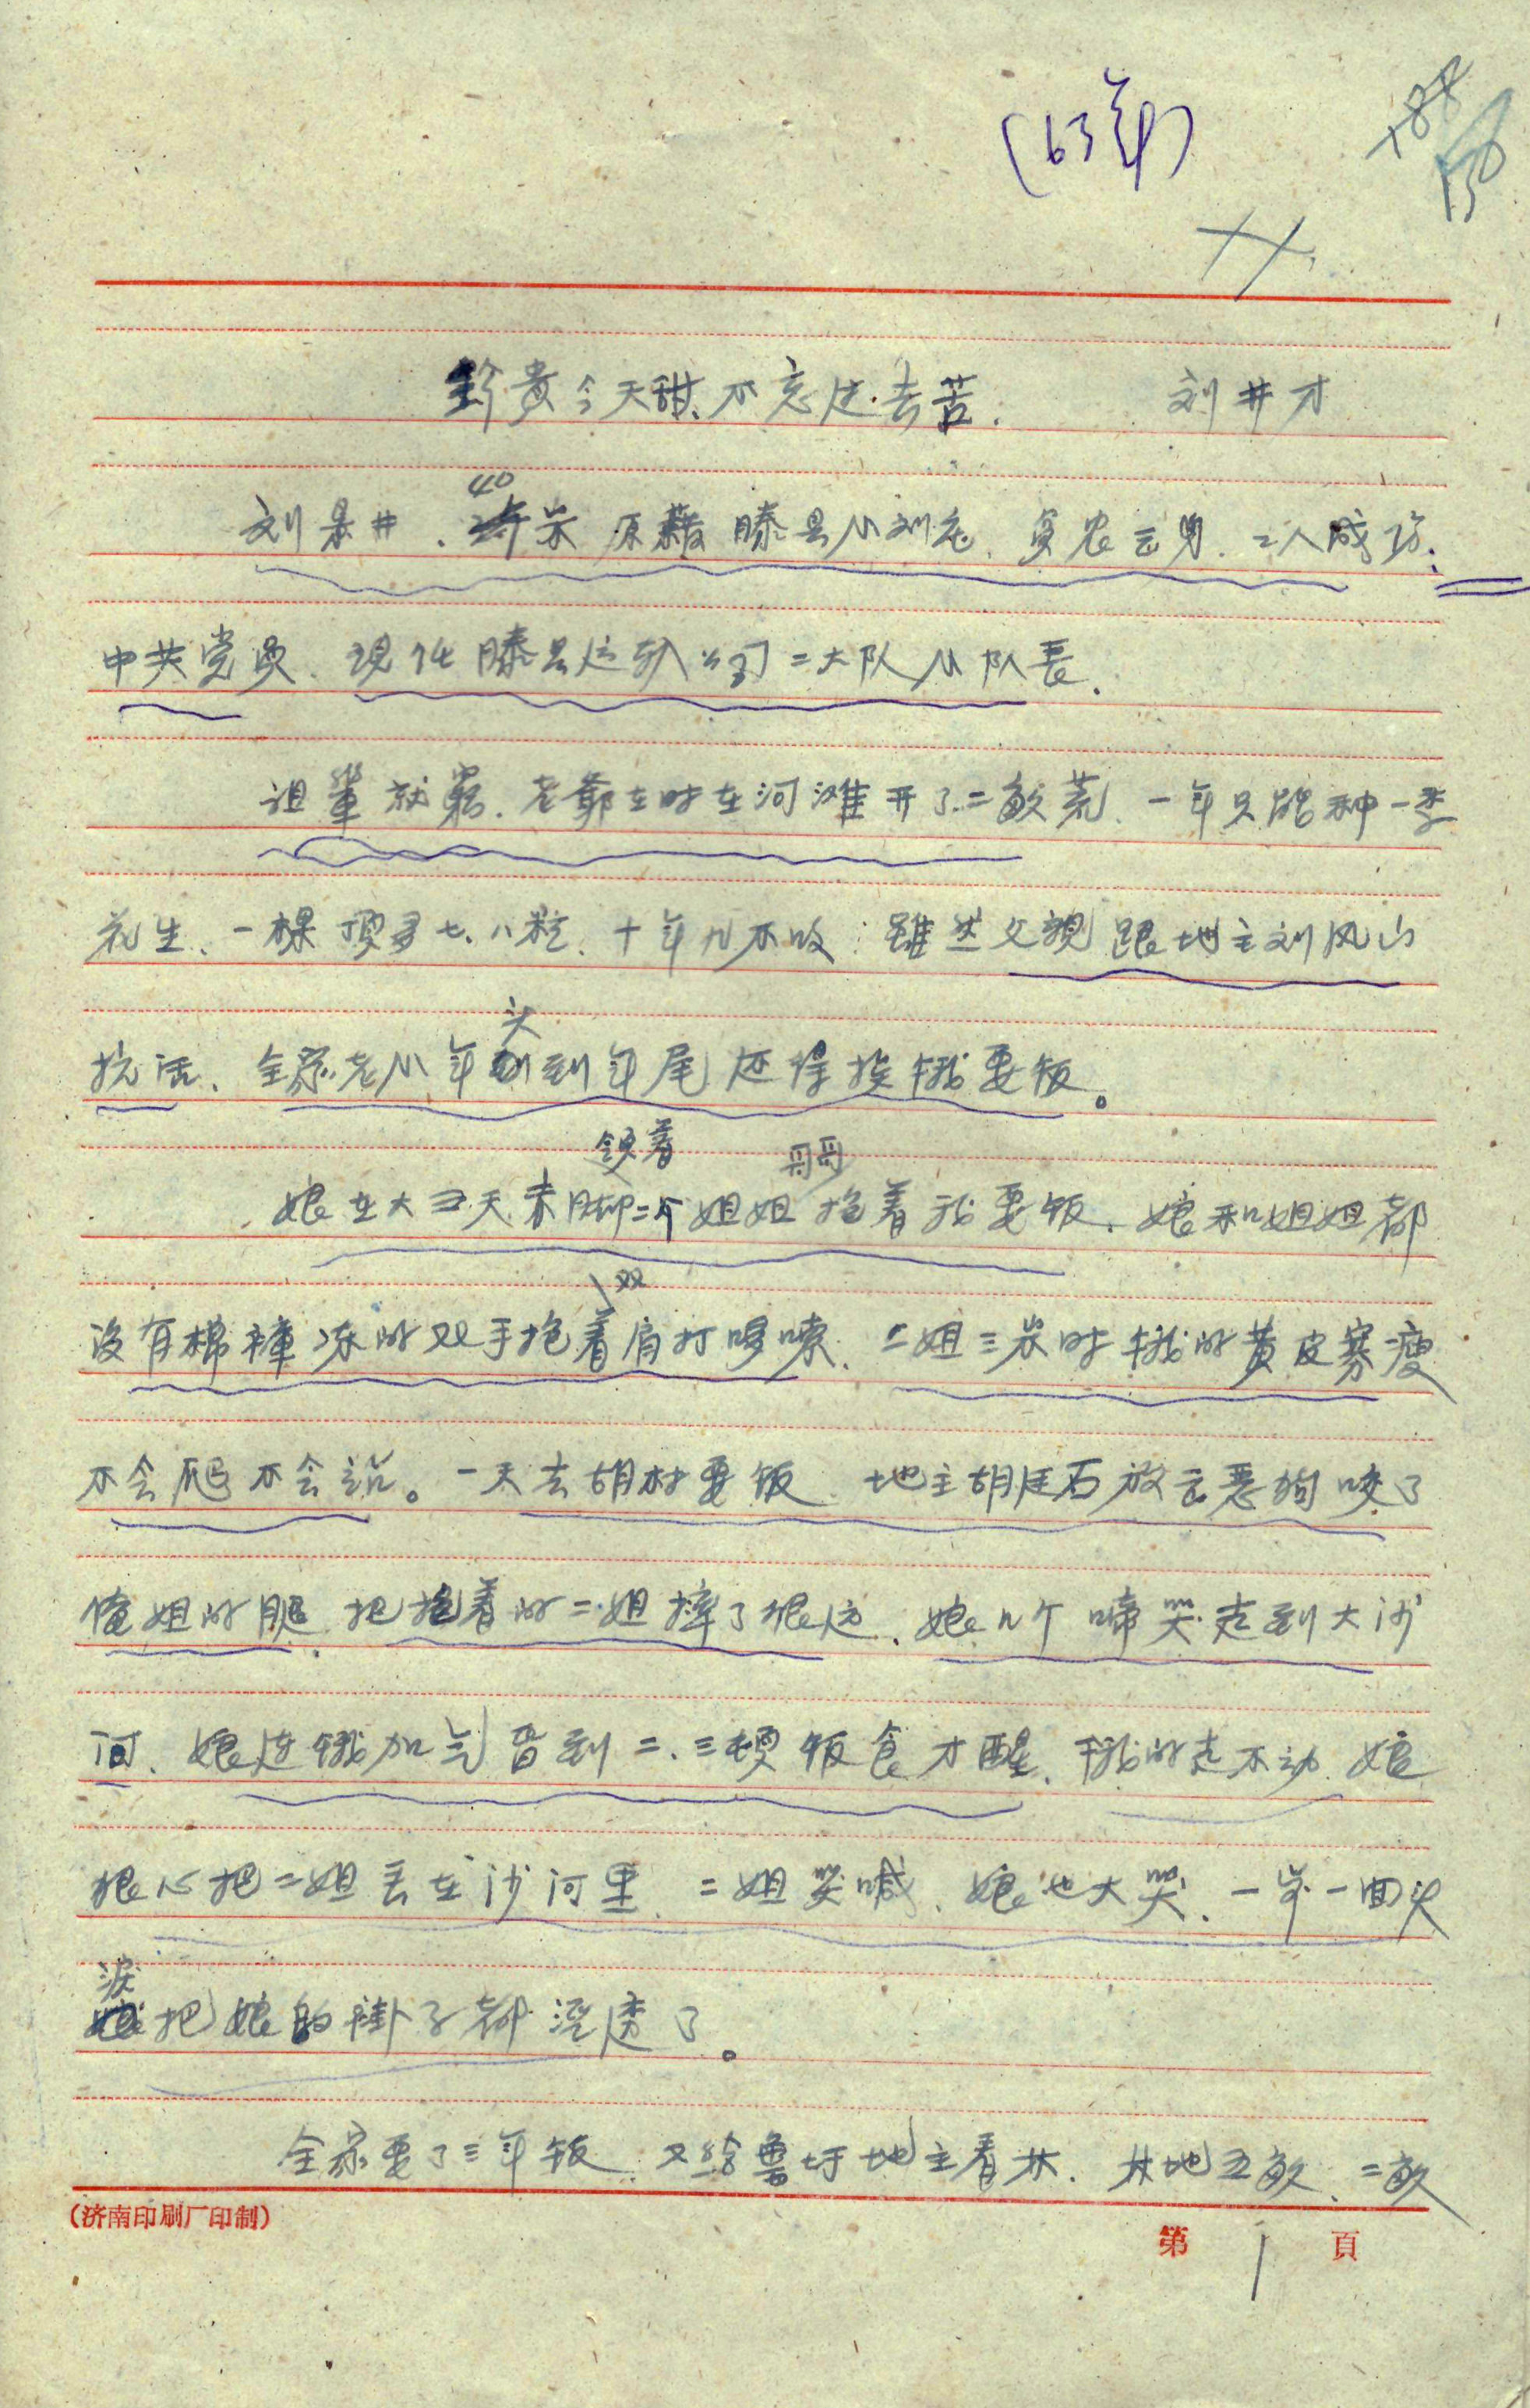 (63年)
珍贵今天甜、不忘过去苦. 刘井才
40
刘景井、岁 原藉滕县小刘庄、贫农云身、工人成份、
中共党员、现任滕县运输公司二大队小队长.
祖辈就穷、老爷在时在河滩开了二畝荒、一年只能种一季
花生、一棵顶多七、八粒、十年九不收；雖然父親跟地主刘风山
头
抗活、全家老小年到年尾还得挨饿要饭。
领着 哥哥
娘在大冬天赤脚二个姐姐抱着我要饭、娘和姐姐都
双
没有棉裤冻的双手抱着肩打哆嗦、二姐三岁时饿的黄皮寡瘦
不会爬不会说。一天去胡村要饭 地主胡廷石放云恶狗咬了
俺姐的腿、把抱着的二姐摔了很远、娘几个啼哭走到大沙
河、娘连饿加气昏到二、三顿饭食才醒、饿的走不动、娘
狠心把二姐丢在沙河里、二姐哭喊、娘也大哭、一步一回头
淚
把娘的褂子都湿透了。
全家要了三年饭、又给鲁圩地主看林、林地五畝、二畝
(济南印刷厂印制)
第 1 頁